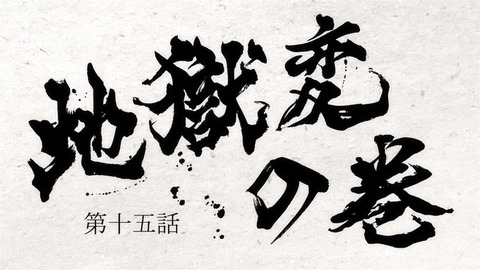 地獄変の巻
第十五話